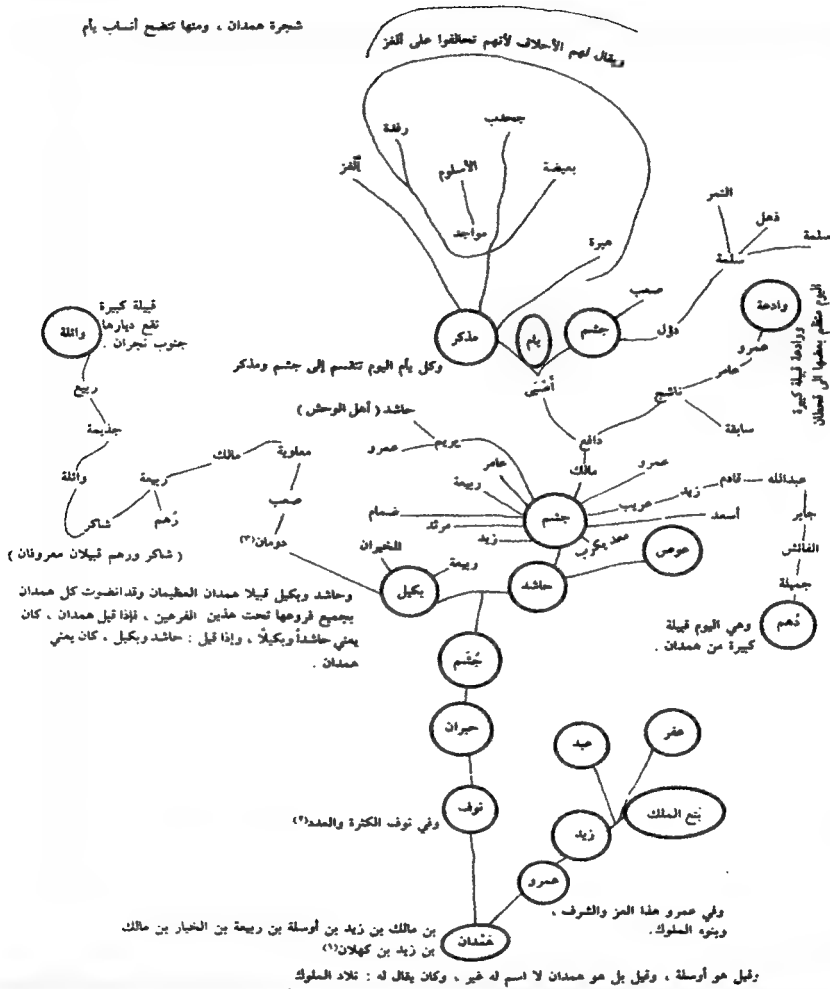 شجرة همدان ، ومنها تتضح أنساب يأم
ويقال لهم الأحلاف لأنهم تحالفوا على ألغز
جحدب
رفدة
ألغز
الأسلوم
بعيضة
مواجد
هبرة
النمر
ذهل
سلمة
سلمة
صعب
دؤل
جشم
يام
مذكر
وادعة
عمرو
عامر
ناشج
سابقة
ووادعة قبيلة كبيرة
اليوم منظم بعضها الى قحطان
وكل يأم اليوم تنقسم إلى جشم ومذكر
أصْبَى
دافع
مالك
قبيلة كبيرة
تقع ديارها
جنوب نجران .
وائلة
ربيع
جذيمة
وائلة
شاكر
ربيعة
رُهم
مالك
معاوية
صعب
دومان(٣)
( شاكر ورهم قبيلان معروفان )
حاشد ( أهل الوحش )
يريم
عمرو
عامر
ربيعة
ضمام
مرثد
زيد
جشم
عمرو
عريب
زيد
قادم
عبدالله
أسعد
معد يكرب
جابر
الفائش
جميلة
دُهم
وهي اليوم قبيلة
كبيرة من همدان .
عوص
حاشد
بكيل
ربيعة
للخيران
وحاشد وبكيل قبيلا همدان العظيمان وقد انضوت كل همدان
بجميع فروعها تحت هذين الفرعين ، فإذا قيل همدان ، كان
يعني حاشداً وبكيلًا ، وإذا قيل : حاشد وبكيل ، كان يعني
همدان .
جُشَم
حيران
نوف
وفي نوف الكثرة والعدد(٢)
عبد
عفر
بَتع الملك
زيد
عمرو
وفي عمرو هذا العز والشرف ،
وبنوه الملوك.
هَمْدان
بن مالك بن زيد بن أوسلة بن ربيعة بن الخيار بن مالك
بن زيد بن كهلان(١)
وقيل هو أوسلة ، وقيل بل هو همدان لا اسم له غير ، وكان يقال له : تلاد الملوك